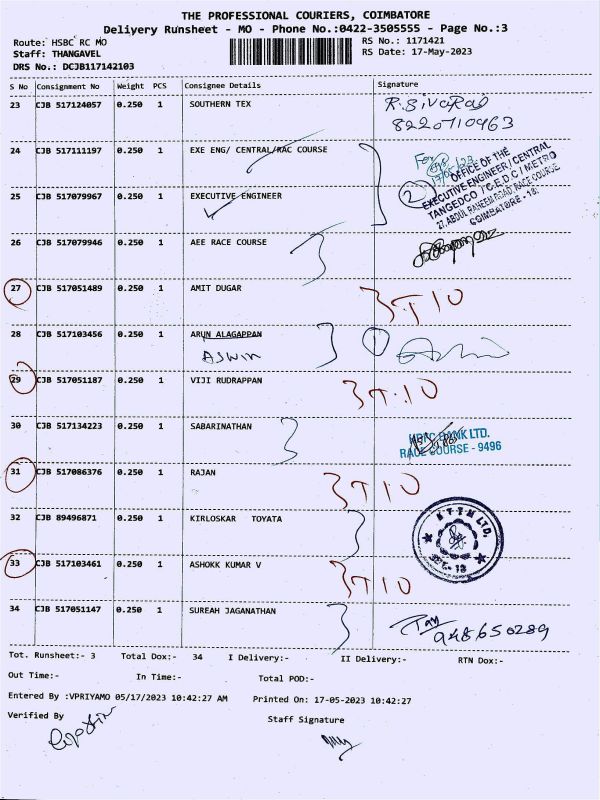 THE PROFESSIONAL COURIERS, COIMBATORE
Deliyery Runsheet - MO - Phone No.:0422-3505555 - Page No.:3
Route: HSBC RC MO RS No.: 1171421
Staff: THANGAVEL RS Date: 17-May-2023
DRS No.: DCJB117142103
S No Consignment No Weight PCS Consignee Details Signature
23 CJB 517124057 0.250 1 SOUTHERN TEX R. Sivaraj
8220710463
24 CJB 517111197 0.250 1 EXE ENG/ CENTRAL/RAC COURSE
25 CJB 517079967 0.250 1 EXECUTIVE ENGINEER
For
2
OFFICE OF THE
EXECUTIVE ENGINEER / CENTRAL
TANGEDCO / C.E.D.C / METRO
27, ABDUL RAHEEM ROAD, RACE COURSE
COIMBATORE - 18.
26 CJB 517079946 0.250 1 AEE RACE COURSE
27 CJB 517051489 0.250 1 AMIT DUGAR 3T10
28 CJB 517103456 0.250 1 ARUN ALAGAPPAN 1
ASWIN
29 CJB 517051187 0.250 1 VIJI RUDRAPPAN 3T.10
30 CJB 517134223 0.250 1 SABARINATHAN
BANK LTD.
RACE COURSE - 9496
31 CJB 517086376 0.250 1 RAJAN 3T10
32 CJB 89496871 0.250 1 KIRLOSKAR TOYATA
LTD.
33 CJB 517103461 0.250 1 ASHOKK KUMAR V 3T10
34 CJB 517051147 0.250 1 SUREAH JAGANATHAN
Tot. Runsheet:- 3 Total Dox:- 34 I Delivery:- II Delivery:- RTN Dox:-
Out Time:- In Time:- Total POD:-
Entered By :VPRIYAMO 05/17/2023 10:42:27 AM Printed On: 17-05-2023 10:42:27
Verified By Staff Signature